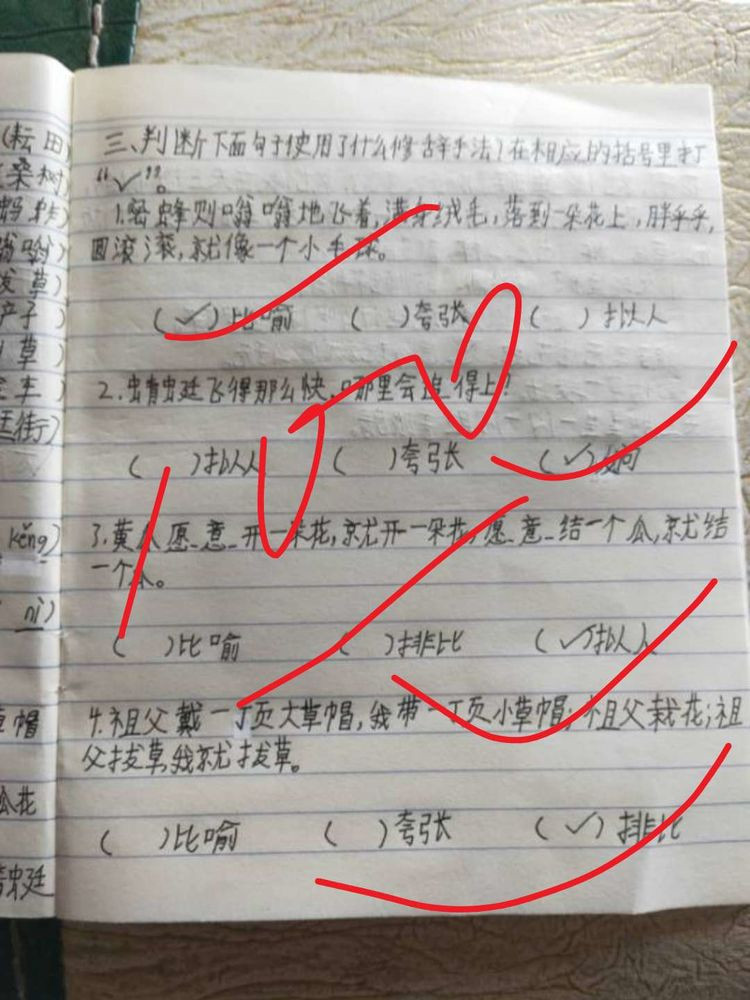 (耘田)
桑树)
蚂蚱)
草)
产子)
草)
车)
街)
kěng)
nì)
草帽
瓜花
蜻蜓
三、判断下面句子使用了什么修辞手法?在相应的括号里打
“✓”。
1.蜜蜂则嗡嗡地飞着,满身绒毛,落到一朵花上,胖乎乎,
圆滚滚,就像一个小毛球。
(✓)比喻 ( )夸张 ( )拟人
2.蜻蜓飞得那么快,哪里会追得上?
( )拟人 ( )夸张 (✓)反问
3.黄瓜愿意开一朵花,就开一朵花,愿意结一个瓜,就结
一个瓜。
( )比喻 ( )排比 (✓)拟人
4.祖父戴一顶大草帽,我带一顶小草帽;祖父栽花;祖
父拔草,我就拔草。
( )比喻 ( )夸张 (✓)排比
100